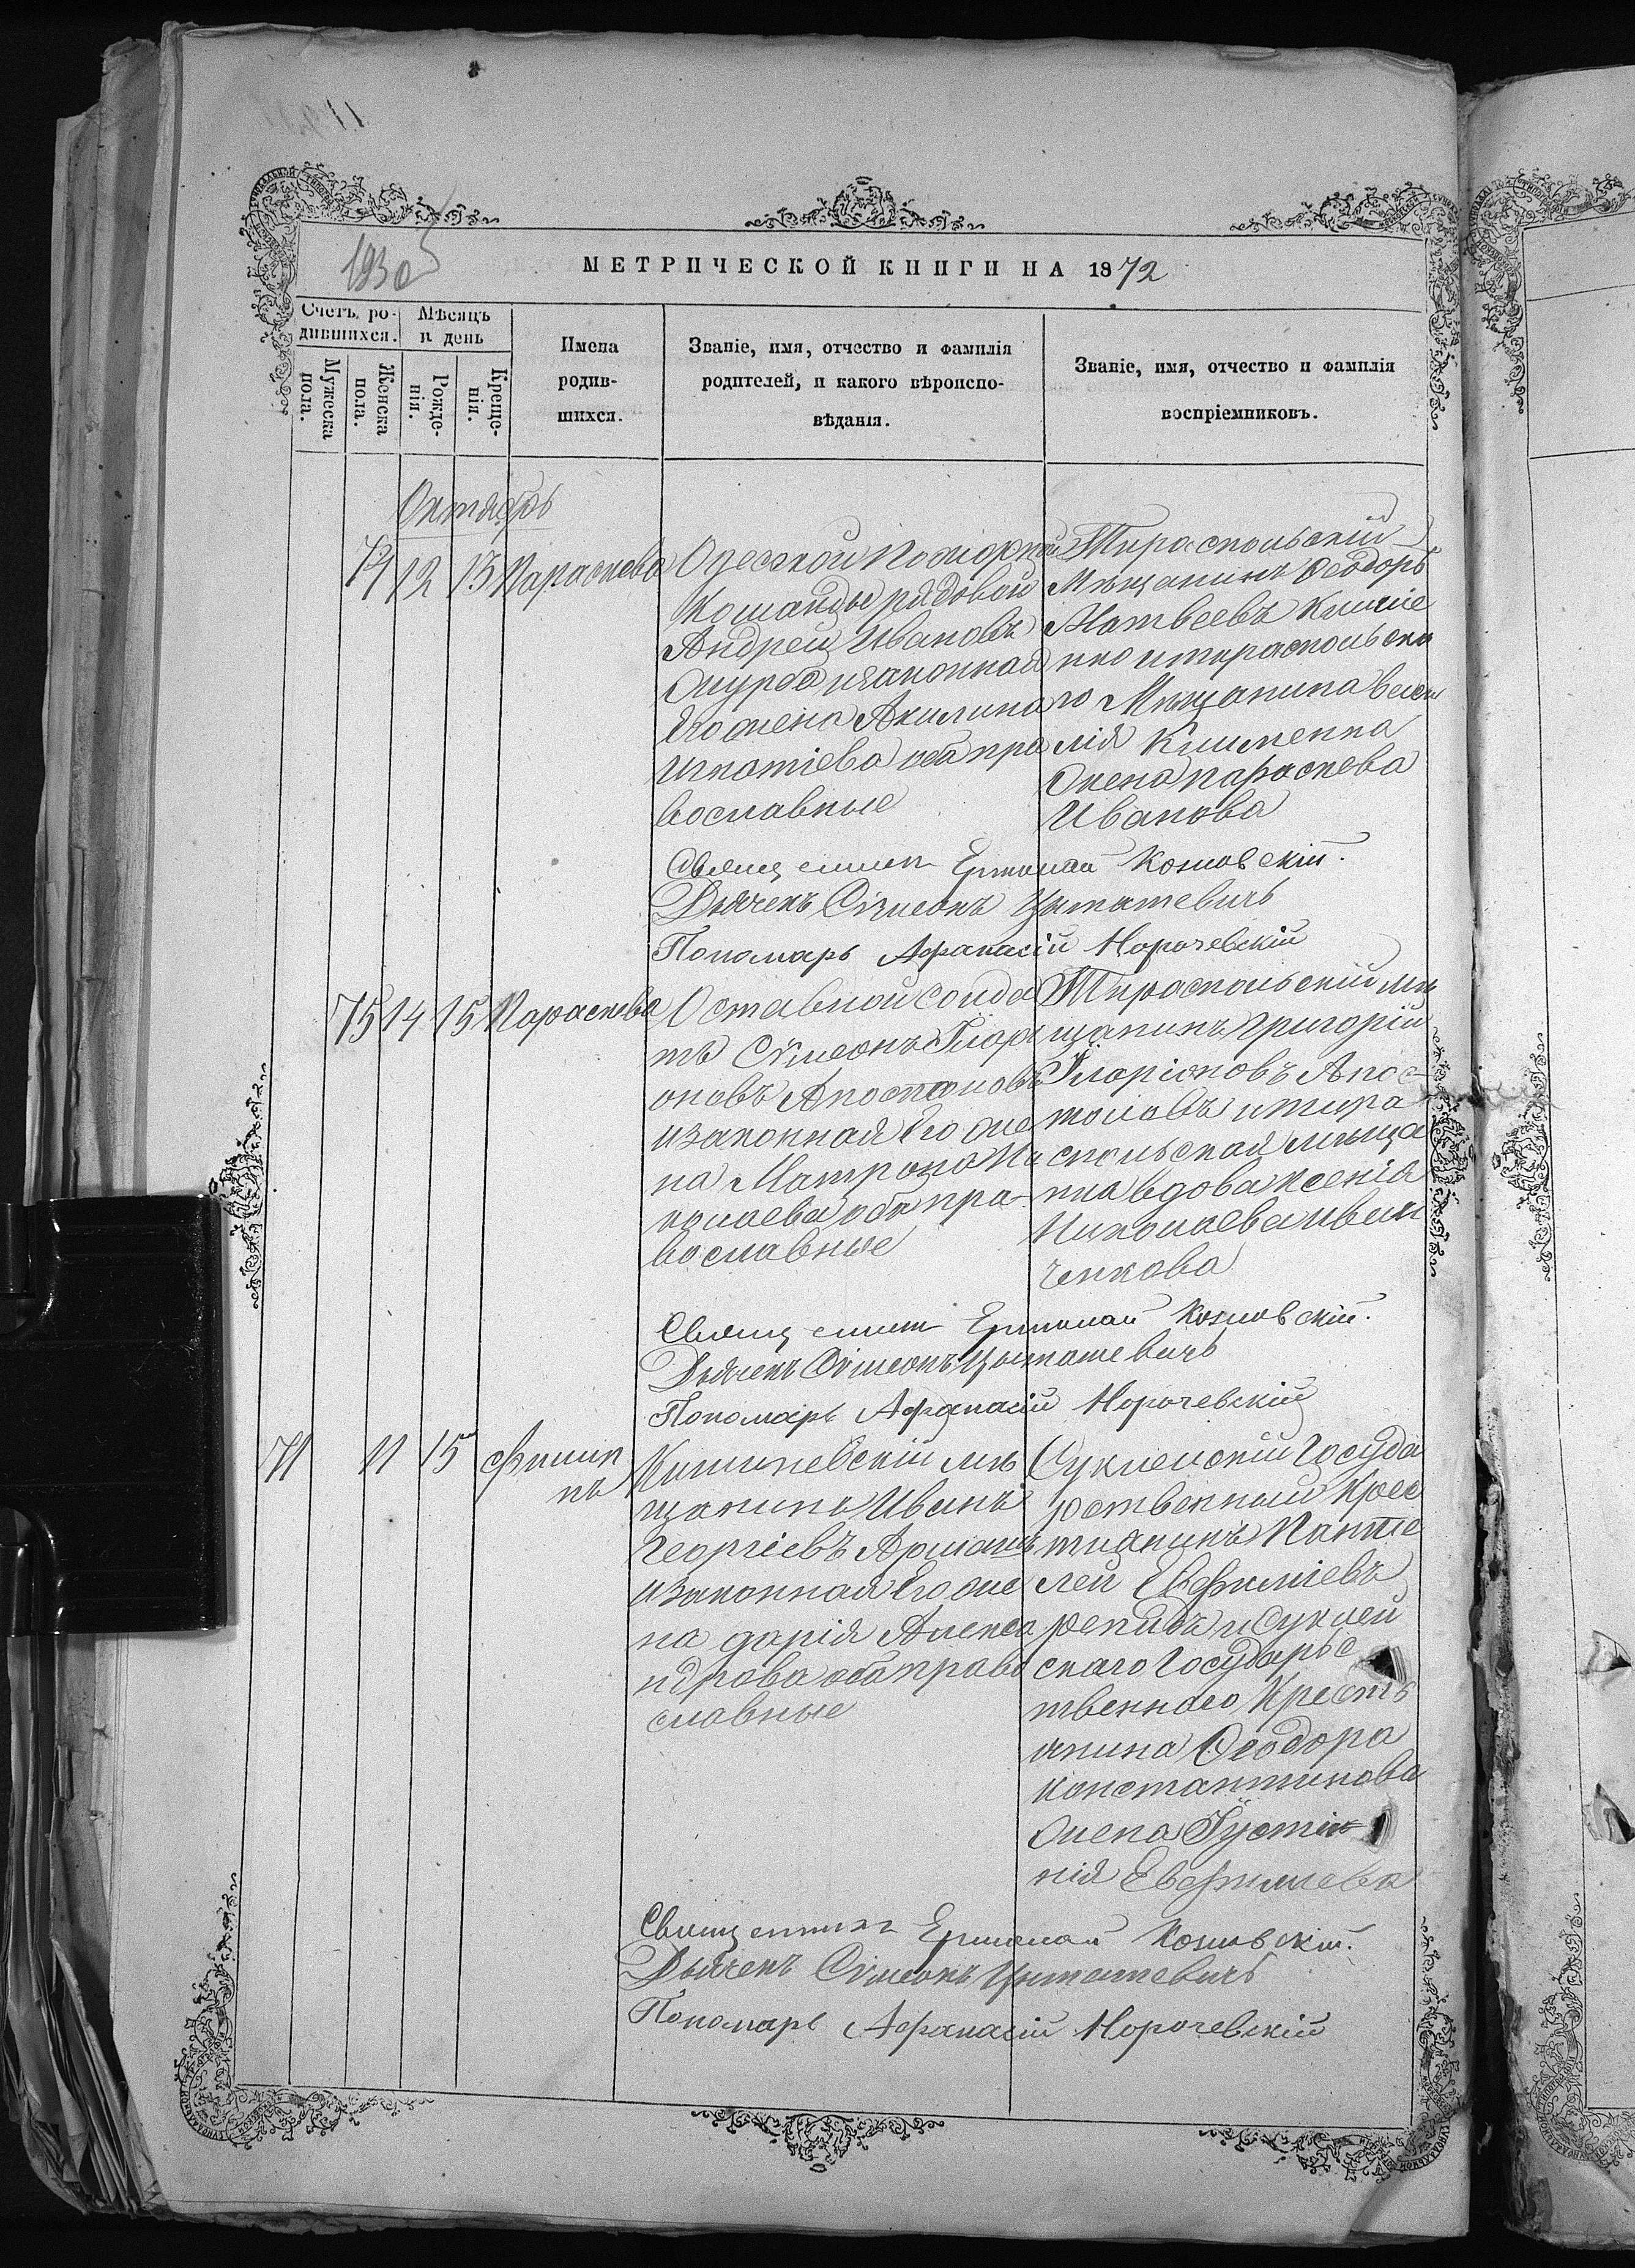 1930
МЕТРИЧЕСКОЙ КНИГИ НА 1872
Счетъ ро-
дившихся.
Мѣсяцъ
и день
Мужеска
пола.
Женска
пола.
Рожде-
нія.
Креще-
нія.
Имена
родив-
шихся.
Званіе, имя, отчество и фамилія
родителей, и какого вѣроиспо-
вѣданія.
Званіе, имя, отчество и фамилія
воспріемниковъ.
Октябрь
74 12 15 Параскева
Одесской
Команды рядовой
Андрей Ивановъ
изаконная
Его жена Акилина
Игнатіева оба пра
вославные
Тираспольскій
Мѣщанинъ Ѳеодоръ
Матвеевъ Климе
нко итираспольска
го Мѣщанина Васи
лія Клименка
Жена параскева
Иванова
Священникъ Ермолай Козловскій.
Дьячекъ Сѵмеонъ Цытатевичъ
Пономарь Афанасій Норочевскій
75 14 15 Параскева
Оставной солда
тъ Сѵмеонъ Иларі
оновъ Апостоловъ
изаконная Его же
на Матрона Ни
колаева оба пра-
вославные
Тираспольскій мѣ
щанинъ Григорій
Иларіоновъ Апос-
толовъ итира
спольская мѣща
нка вдова Ксенія
Николаева иван
ченкова
Священникъ Ермолай Козловскій.
Дьячекъ Сѵмеонъ Цытатевичъ
Пономарь Афанасій Норочевскій
71 11 15 Филип
пъ
Кишиневскій мѣ
щанинъ Иванъ
Георгіевъ
изаконная Его же
на дарія Алекса
ндрова оба право
славные
Суклейскій Госуда
рственный Крес
тиянинъ Панте
лей Евфиміевъ
исуклей
скаго Государьс
твеннаго Кресть
янина Ѳеодора
Константинова
Жена Іустин
нія Евфимиева
Священникъ Ермолай Козловскій.
Дьячекъ Сѵмеонъ Цытатевичъ
Пономарь Афанасій Норочевскій